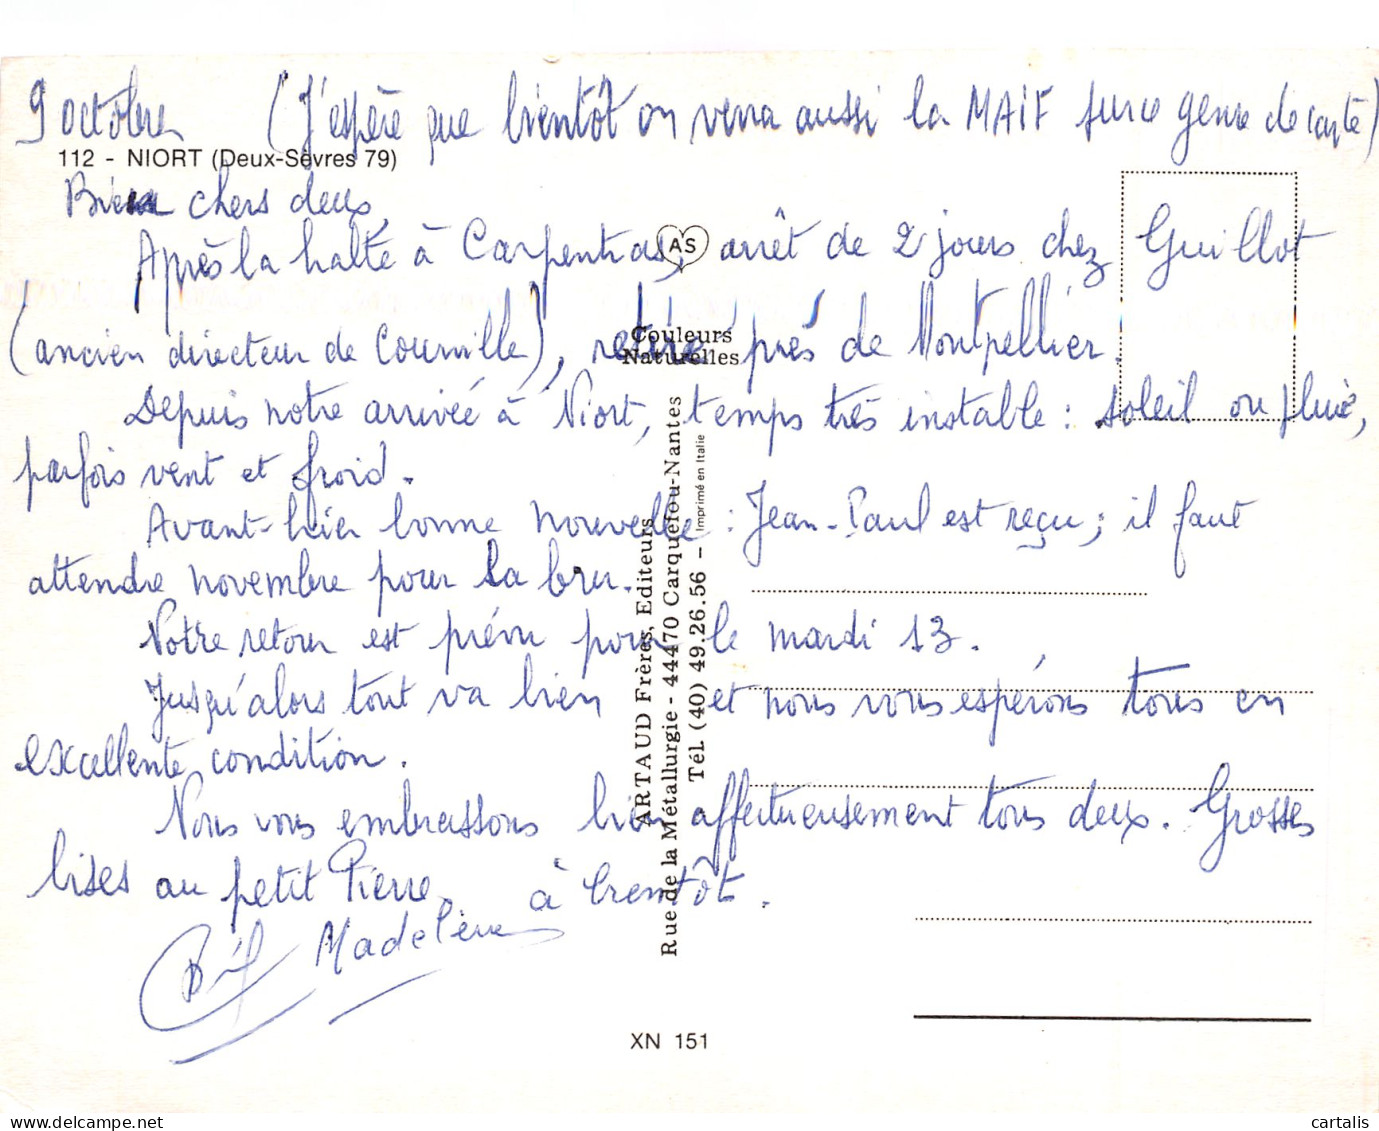 9 octobre (J'espère que bientôt on verra aussi la MAIF sur ce genre de carte)
112 - NIORT (Deux-Sèvres 79)
Bien chers deux,
Après la halte à Carpentras, arrêt de 2 jours chez Guillot
AS
(ancien directeur de Courville), retiré près de Montpellier.
Couleurs
Naturelles
Depuis notre arrivée à Niort, temps très instable : soleil ou pluie,
parfois vent et froid.
Avant-hier bonne nouvelle : Jean-Paul est reçu ; il faut
attendre novembre pour sa bru.
Notre retour est prévu pour le mardi 13.
Jusqu'alors tout va bien et nous vous espérons tous en
excellente condition.
Nous vous embrassons bien affectueusement tous deux. Grosses
bises au petit Pierre. à bientôt.
Madeleine
ARTAUD Frères, Editeurs
Rue de la Métallurgie - 44470 Carquefou-Nantes
Tél. (40) 49.26.56 - Imprimé en Italie
XN 151
cartalis